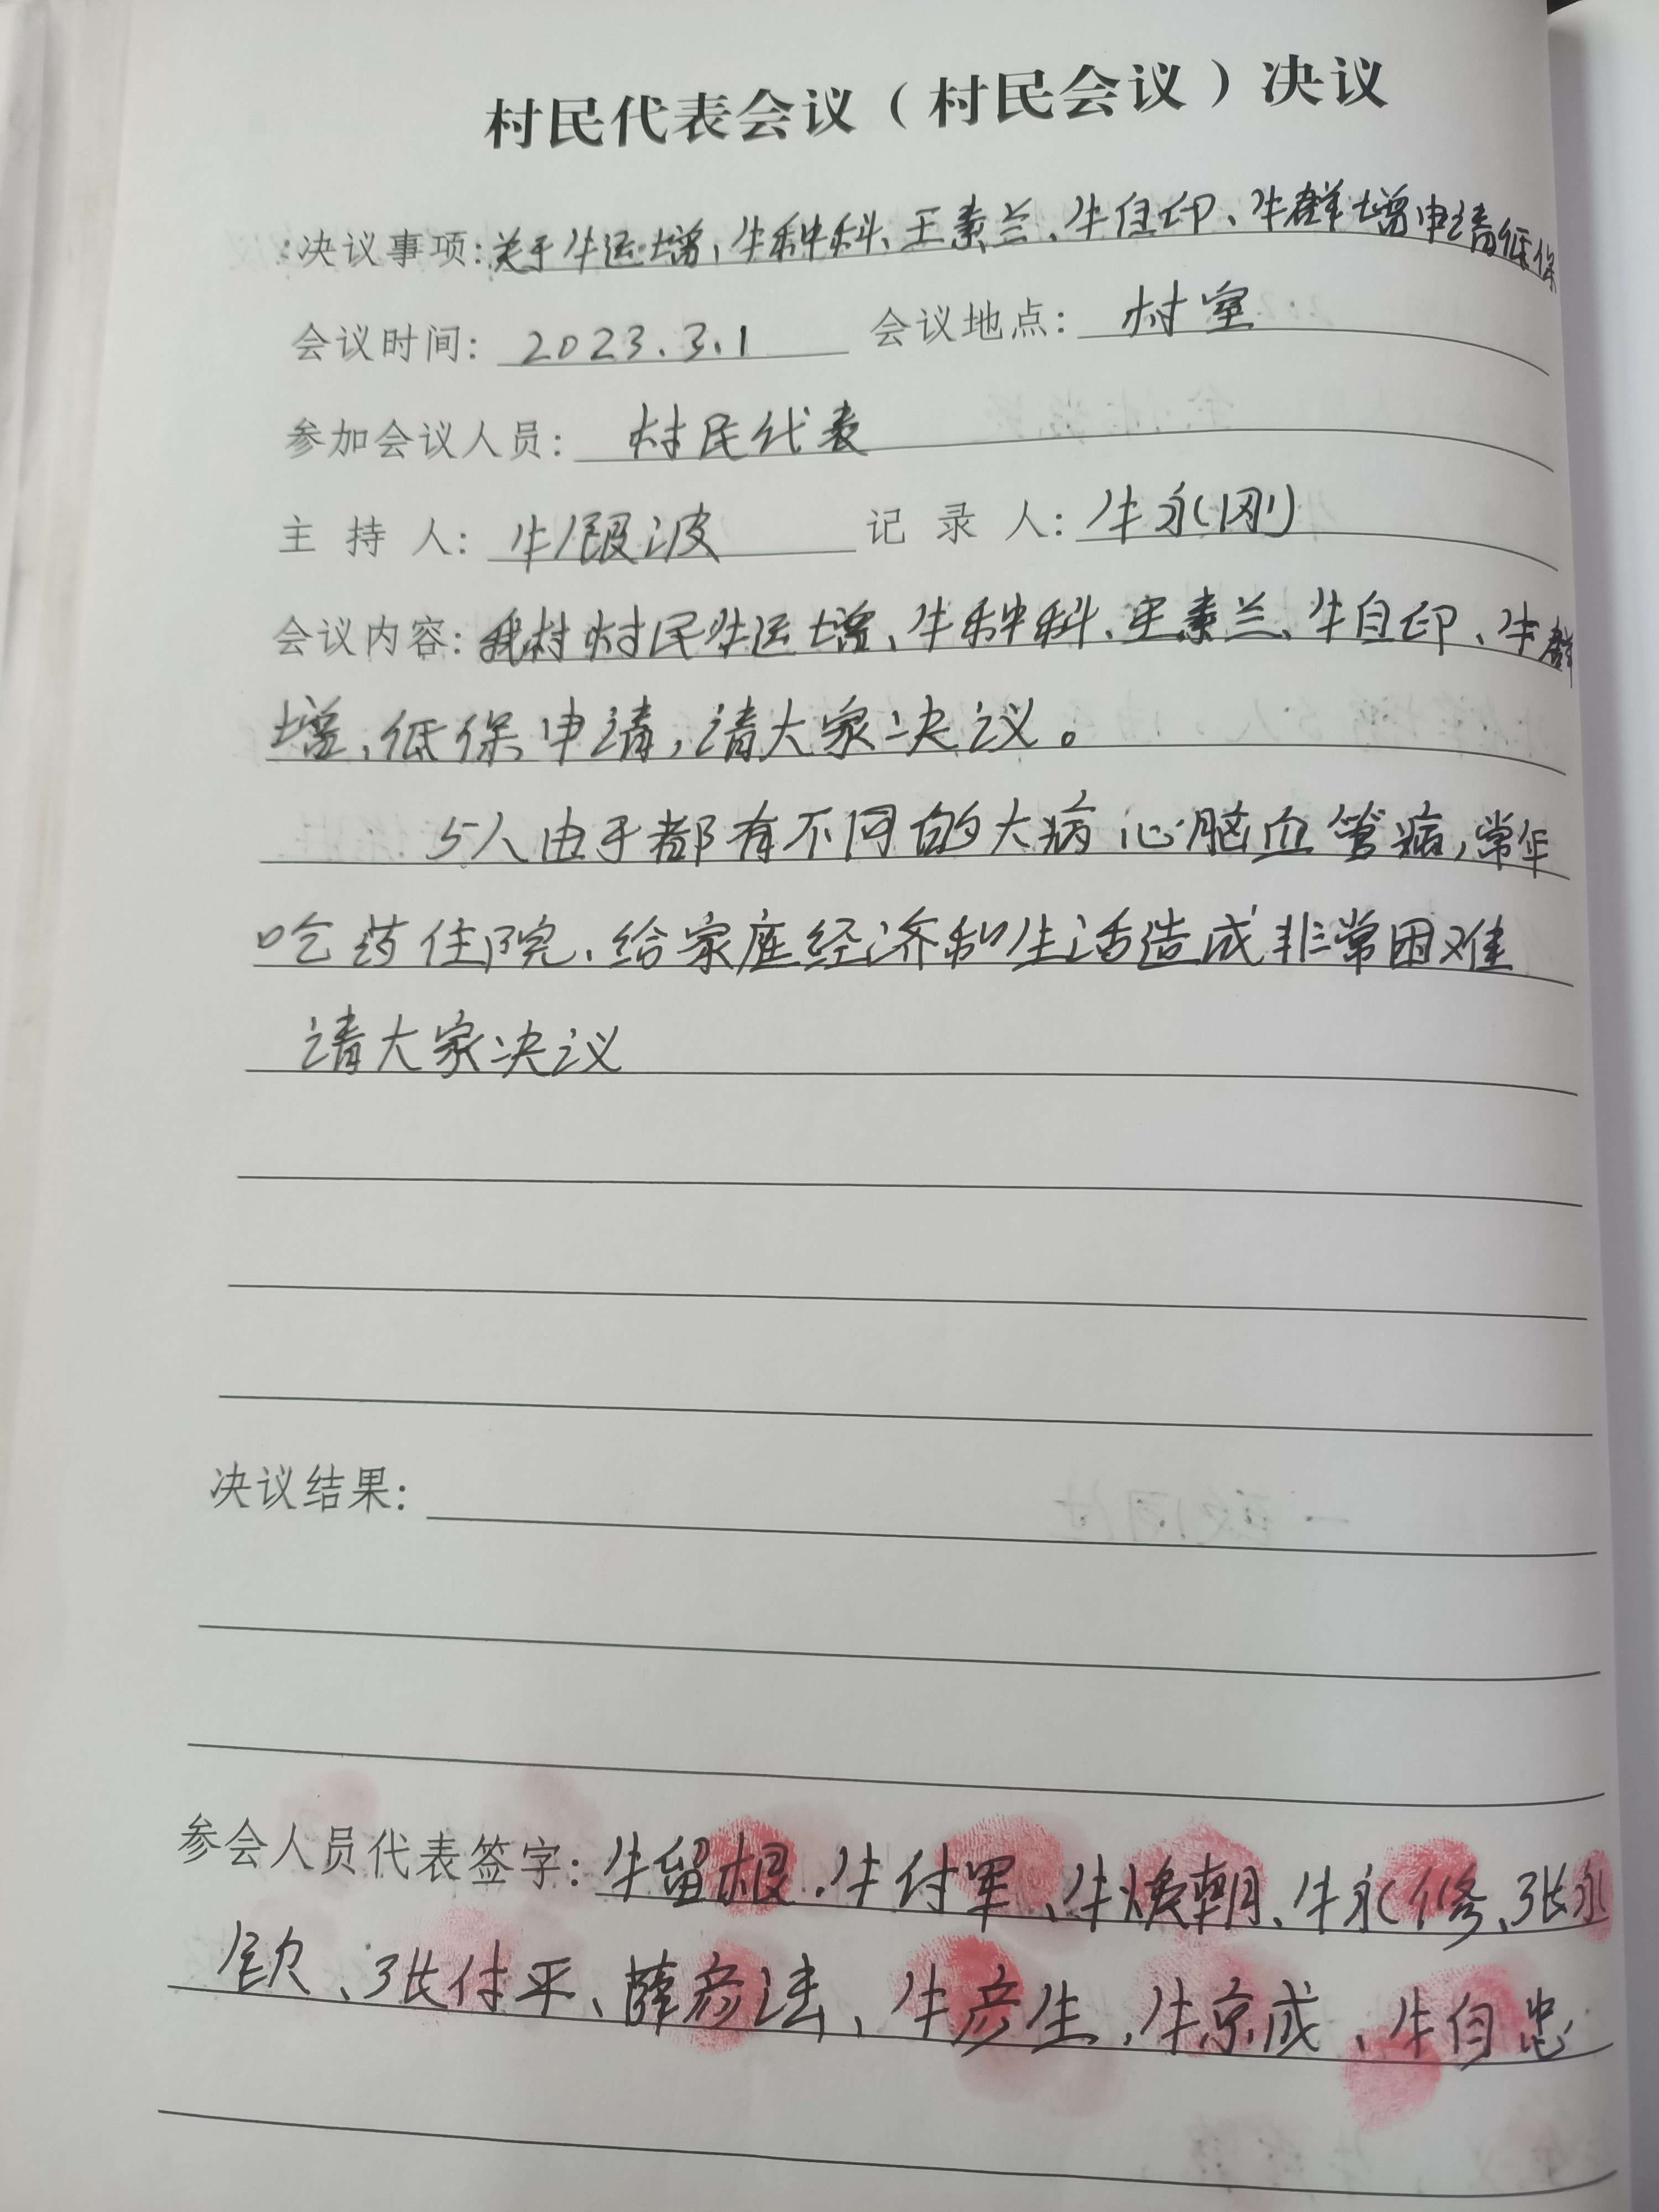 村民代表会议（村民会议）决议
决议事项:关于牛运增、牛种科、王素兰、牛自印、牛群增申请低保
会议时间: 2023.3.1 会议地点: 村室
参加会议人员: 村民代表
主 持 人: 牛殿波 记 录 人: 牛永刚
会议内容: 我村村民牛运增、牛种科、王素兰、牛自印、牛群
增、低保申请,请大家决议。
5人由于都有不同的大病心脑血管病,常年
吃药住院、给家庭经济和生活造成非常困难
请大家决议
决议结果:
参会人员代表签字: 牛留根、牛付军、牛焕朝、牛永修、张永
钦、张付平、薛彦法、牛彦生、牛京成、牛自忠